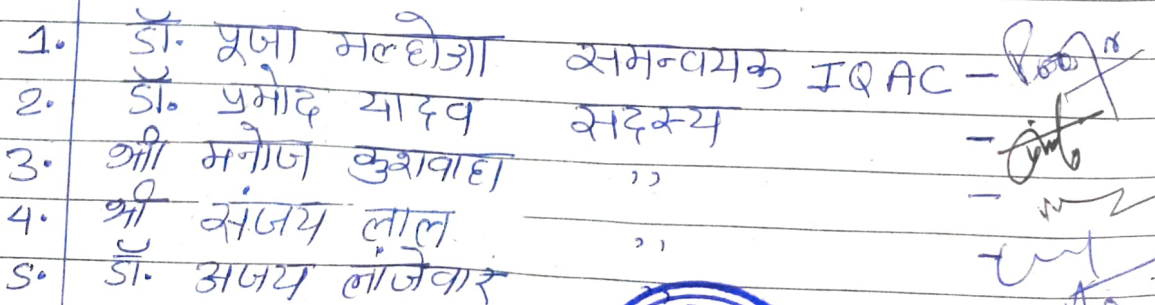 1. डॉ. पूजा मल्होत्रा समन्वयक IQAC -
2. डॉ. प्रमोद यादव सदस्य -
3. श्री मनोज कुशवाहा ,, -
4. श्री संजय लाल ,, -
5. डॉ. अजय लांजेवार ,,